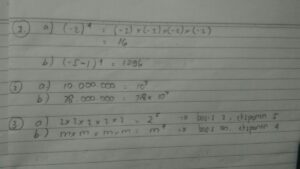 1. a) (-2)⁴ = (-2) × (-2) × (-2) × (-2)
= 16
b) (-5-1)⁴ = 1296
2 a) 10 000 000 = 10⁷
b) 78 000 000 = 78 × 10⁶
3 a) 2 × 2 × 2 × 2 × 2 = 2⁵ → basis 2, eksponen 5
b) m × m × m × m = m⁴ → basis m, eksponen 4